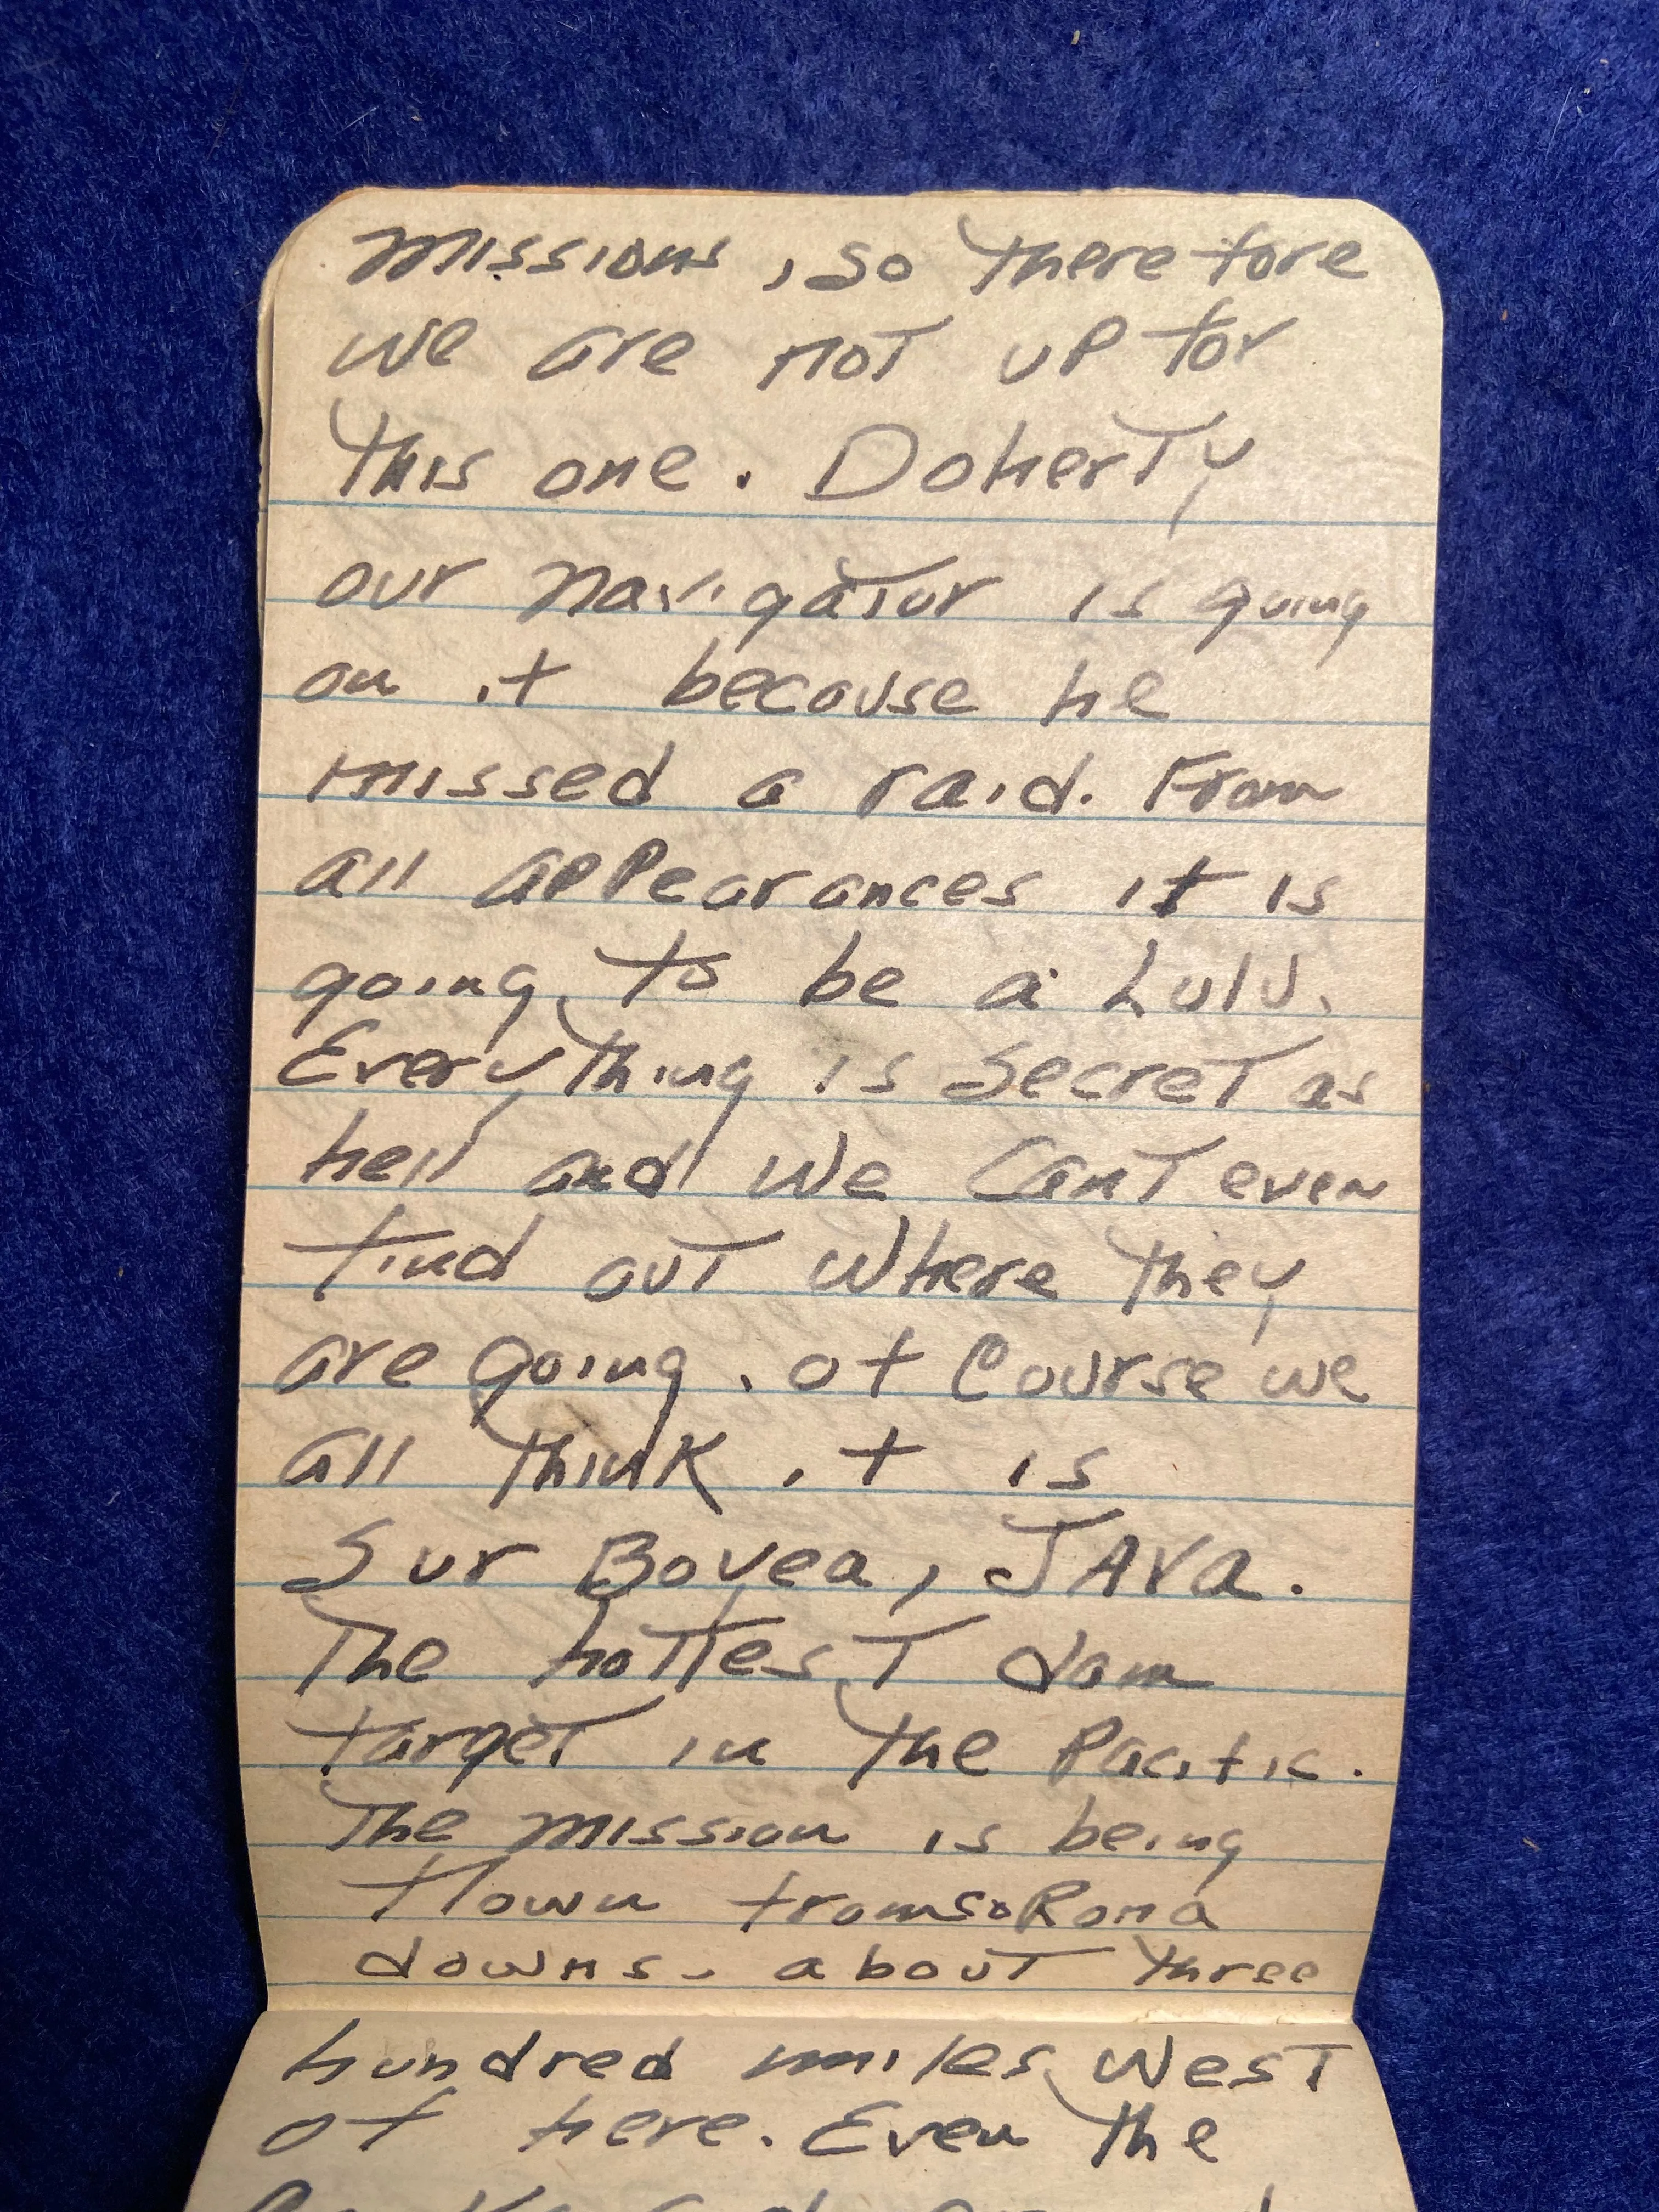 missions, so therefore
we are not up for
this one. Doherty
our navigator is going
on it because he
missed a raid. From
all appearances it is
going to be a Lulu.
Everything is secret as
hell and we cant even
find out where they
are going. of course we
all think it is
Sur Bovea, JAVa.
The hottest dam
target in the Pacific.
The mission is being
flown from Coroma
downs. about three
hundred miles west
of here. Even the